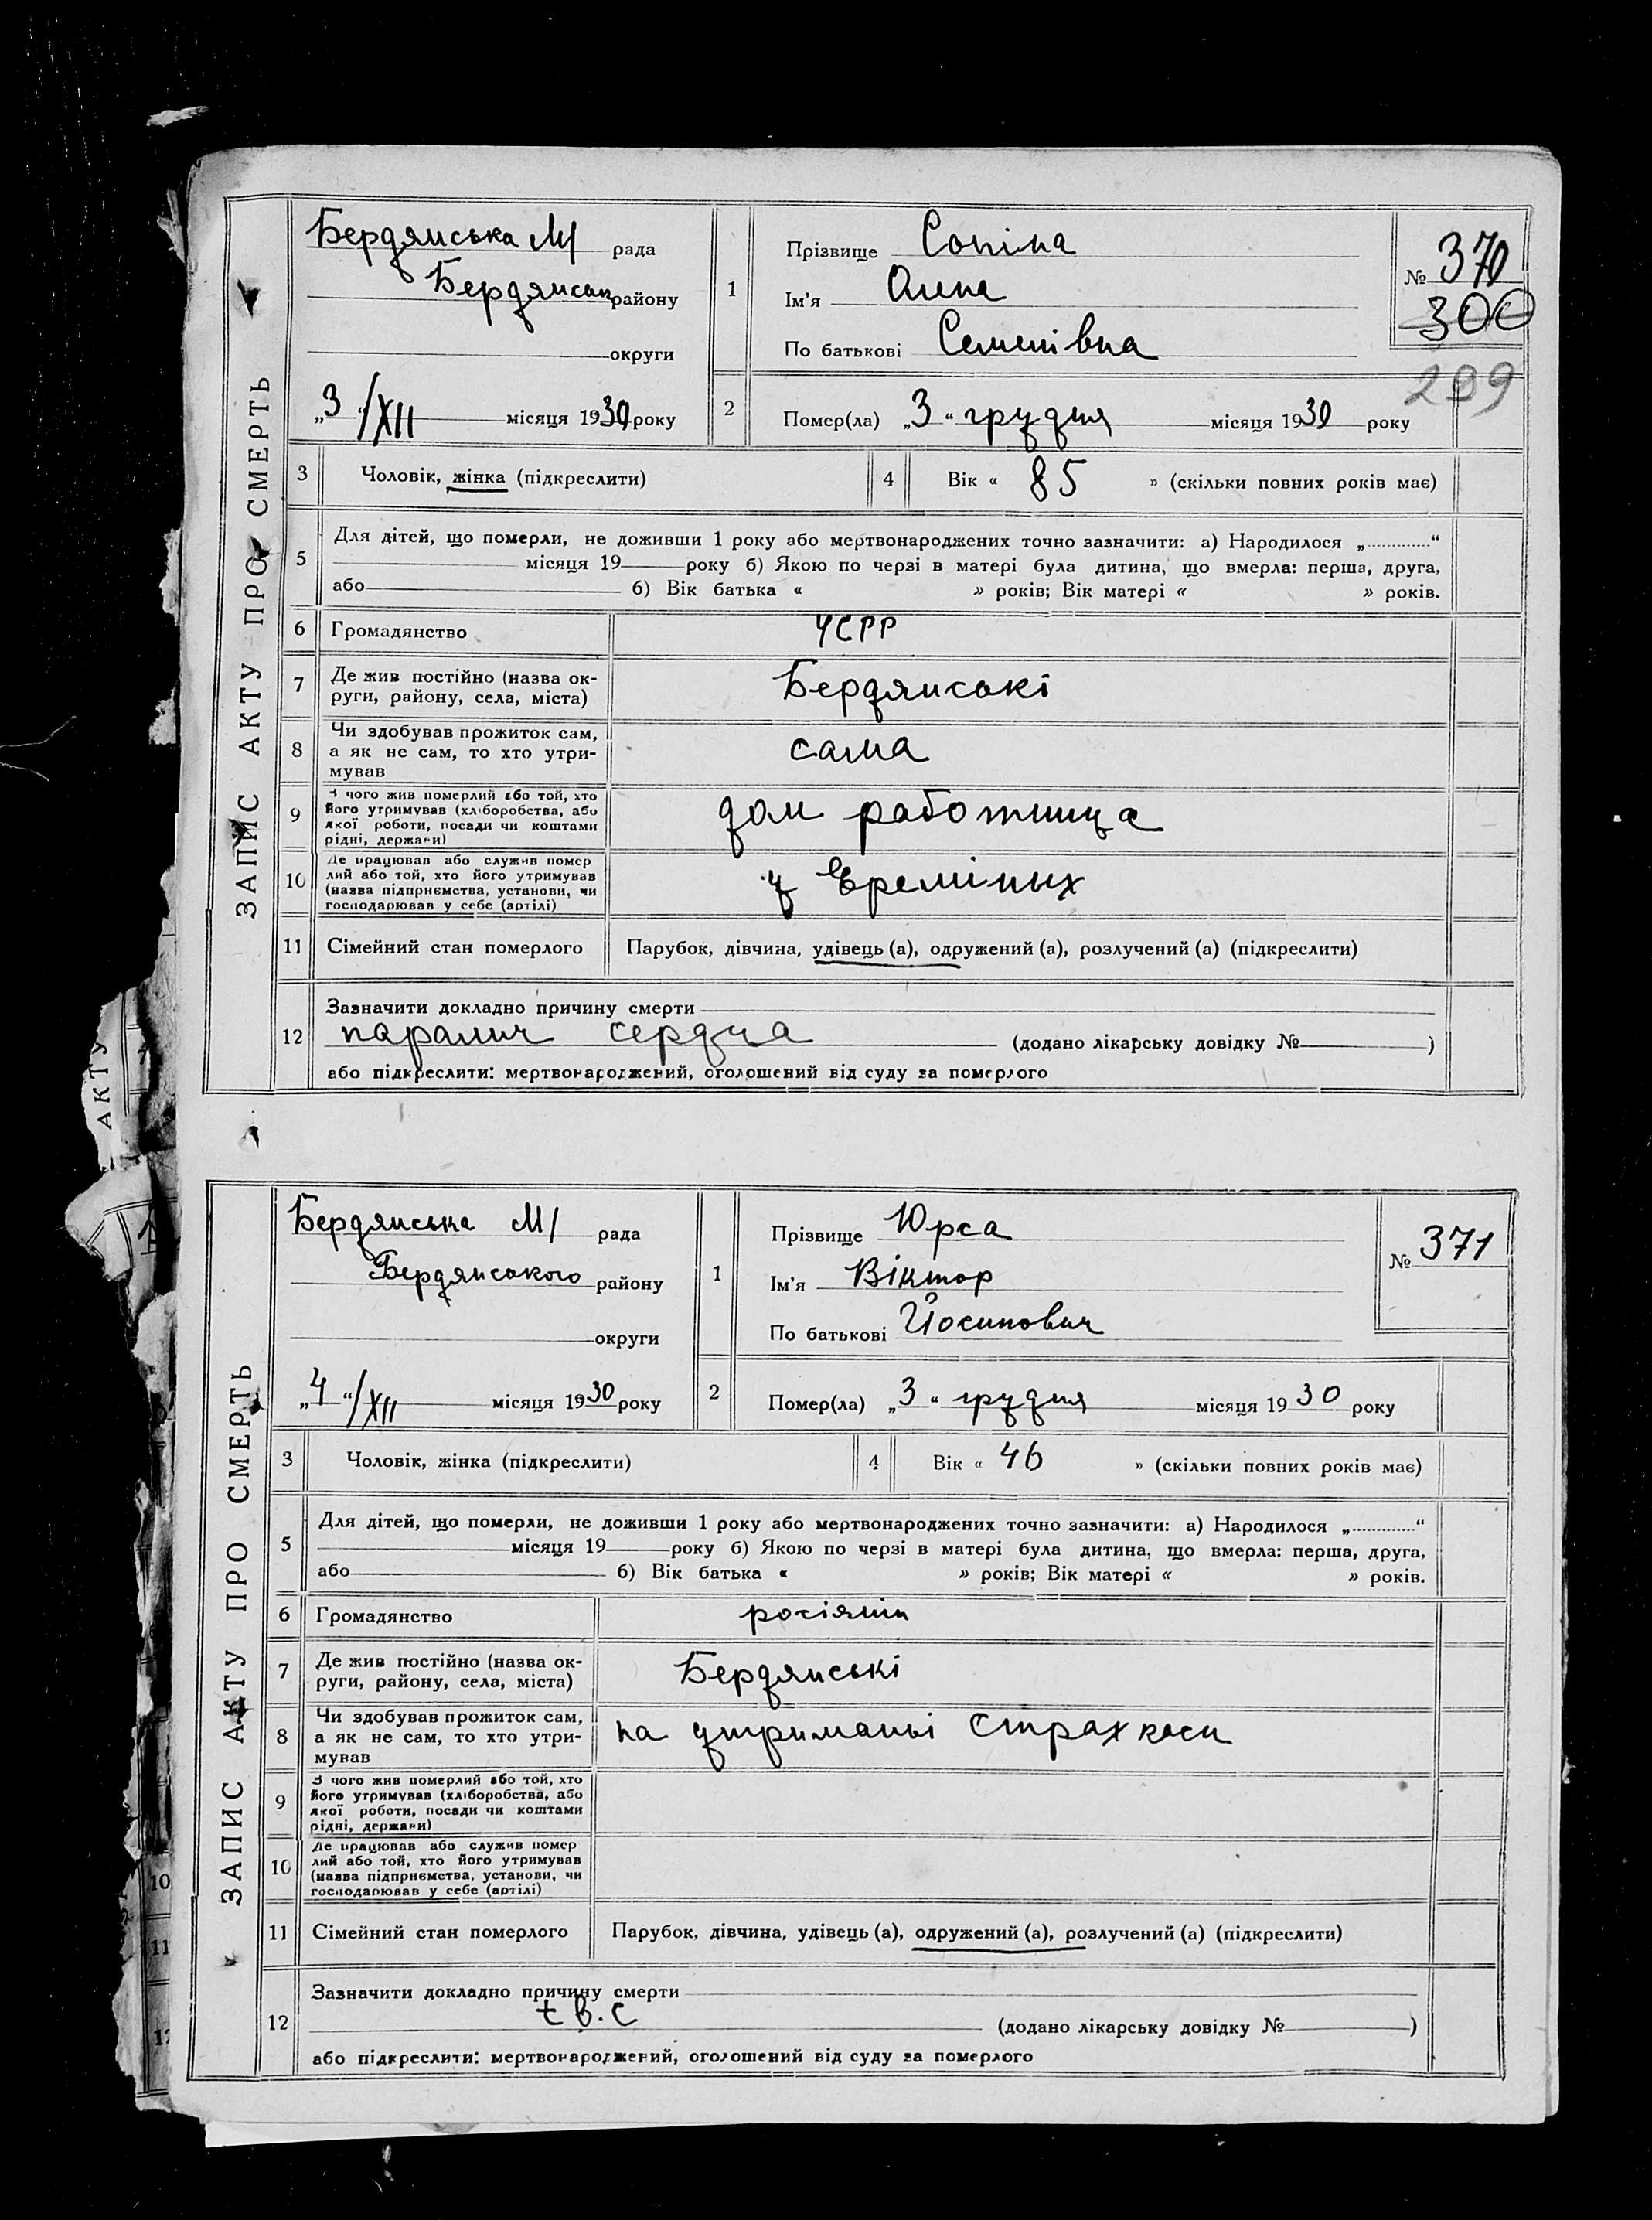 ЗАПИС АКТУ ПРО СМЕРТЬ
Бердянська М/ рада
Бердянськ району
округи
„3 /XII місяця 1930 року
1
Прізвище Сопіна
Ім'я Олена
По батькові Семенівна
№ 370
300
299
2
Помер(ла) „3“ грудня місяця 1930 року
3 Чоловік, жінка (підкреслити)
4 Вік « 85 » (скільки повних років має)
5 Для дітей, що померли, не доживши 1 року або мертвонароджених точно зазначити: а) Народилося „............“
місяця 19 року б) Якою по черзі в матері була дитина, що вмерла: перша, друга,
або б) Вік батька « » років; Вік матері « » років.
6 Громадянство УСРР
7 Де жив постійно (назва ок-
руги, району, села, міста)
Бердянські
8 Чи здобував прожиток сам,
а як не сам, то хто утри-
мував
сама
9 З чого жив померлий або той, хто
його утримував (хліборобства, або
якої роботи, посади чи коштами
рідні, держави)
дом работница
10 Де працював або служив помер
лий або той, хто його утримував
(назва підприємства, установи, чи
господарював у себе (артілі)
у Єремініх
11 Сімейний стан померлого Парубок, дівчина, удівець (а), одружений (а), розлучений (а) (підкреслити)
12 Зазначити докладно причину смерти
параліч сердца (додано лікарську довідку № )
або підкреслити: мертвонароджений, оголошений від суду за померлого
АКТУ
ЗАПИС АКТУ ПРО СМЕРТЬ
Бердянська М/ рада
Бердянського району
округи
„4“/XII місяця 1930 року
1
Прізвище Юрса
Ім'я Віктор
По батькові Йосипович
№ 371
2
Помер(ла) „3“ грудня місяця 1930 року
3 Чоловік, жінка (підкреслити)
4 Вік « 46 » (скільки повних років має)
5 Для дітей, що померли, не доживши 1 року або мертвонароджених точно зазначити: а) Народилося „............“
місяця 19 року б) Якою по черзі в матері була дитина, що вмерла: перша, друга,
або б) Вік батька « » років; Вік матері « » років.
6 Громадянство росіянин
7 Де жив постійно (назва ок-
руги, району, села, міста)
Бердянські
8 Чи здобував прожиток сам,
а як не сам, то хто утри-
мував
на утриманьі Страхкаси
9 З чого жив померлий або той, хто
його утримував (хліборобства, або
якої роботи, посади чи коштами
рідні, держави)
10 Де працював або служив помер
лий або той, хто його утримував
(назва підприємства, установи, чи
господарював у себе (артілі)
11 Сімейний стан померлого Парубок, дівчина, удівець (а), одружений (а), розлучений (а) (підкреслити)
12 Зазначити докладно причину смерти
t в. с (додано лікарську довідку № )
або підкреслити: мертвонароджений, оголошений від суду за померлого
10
11